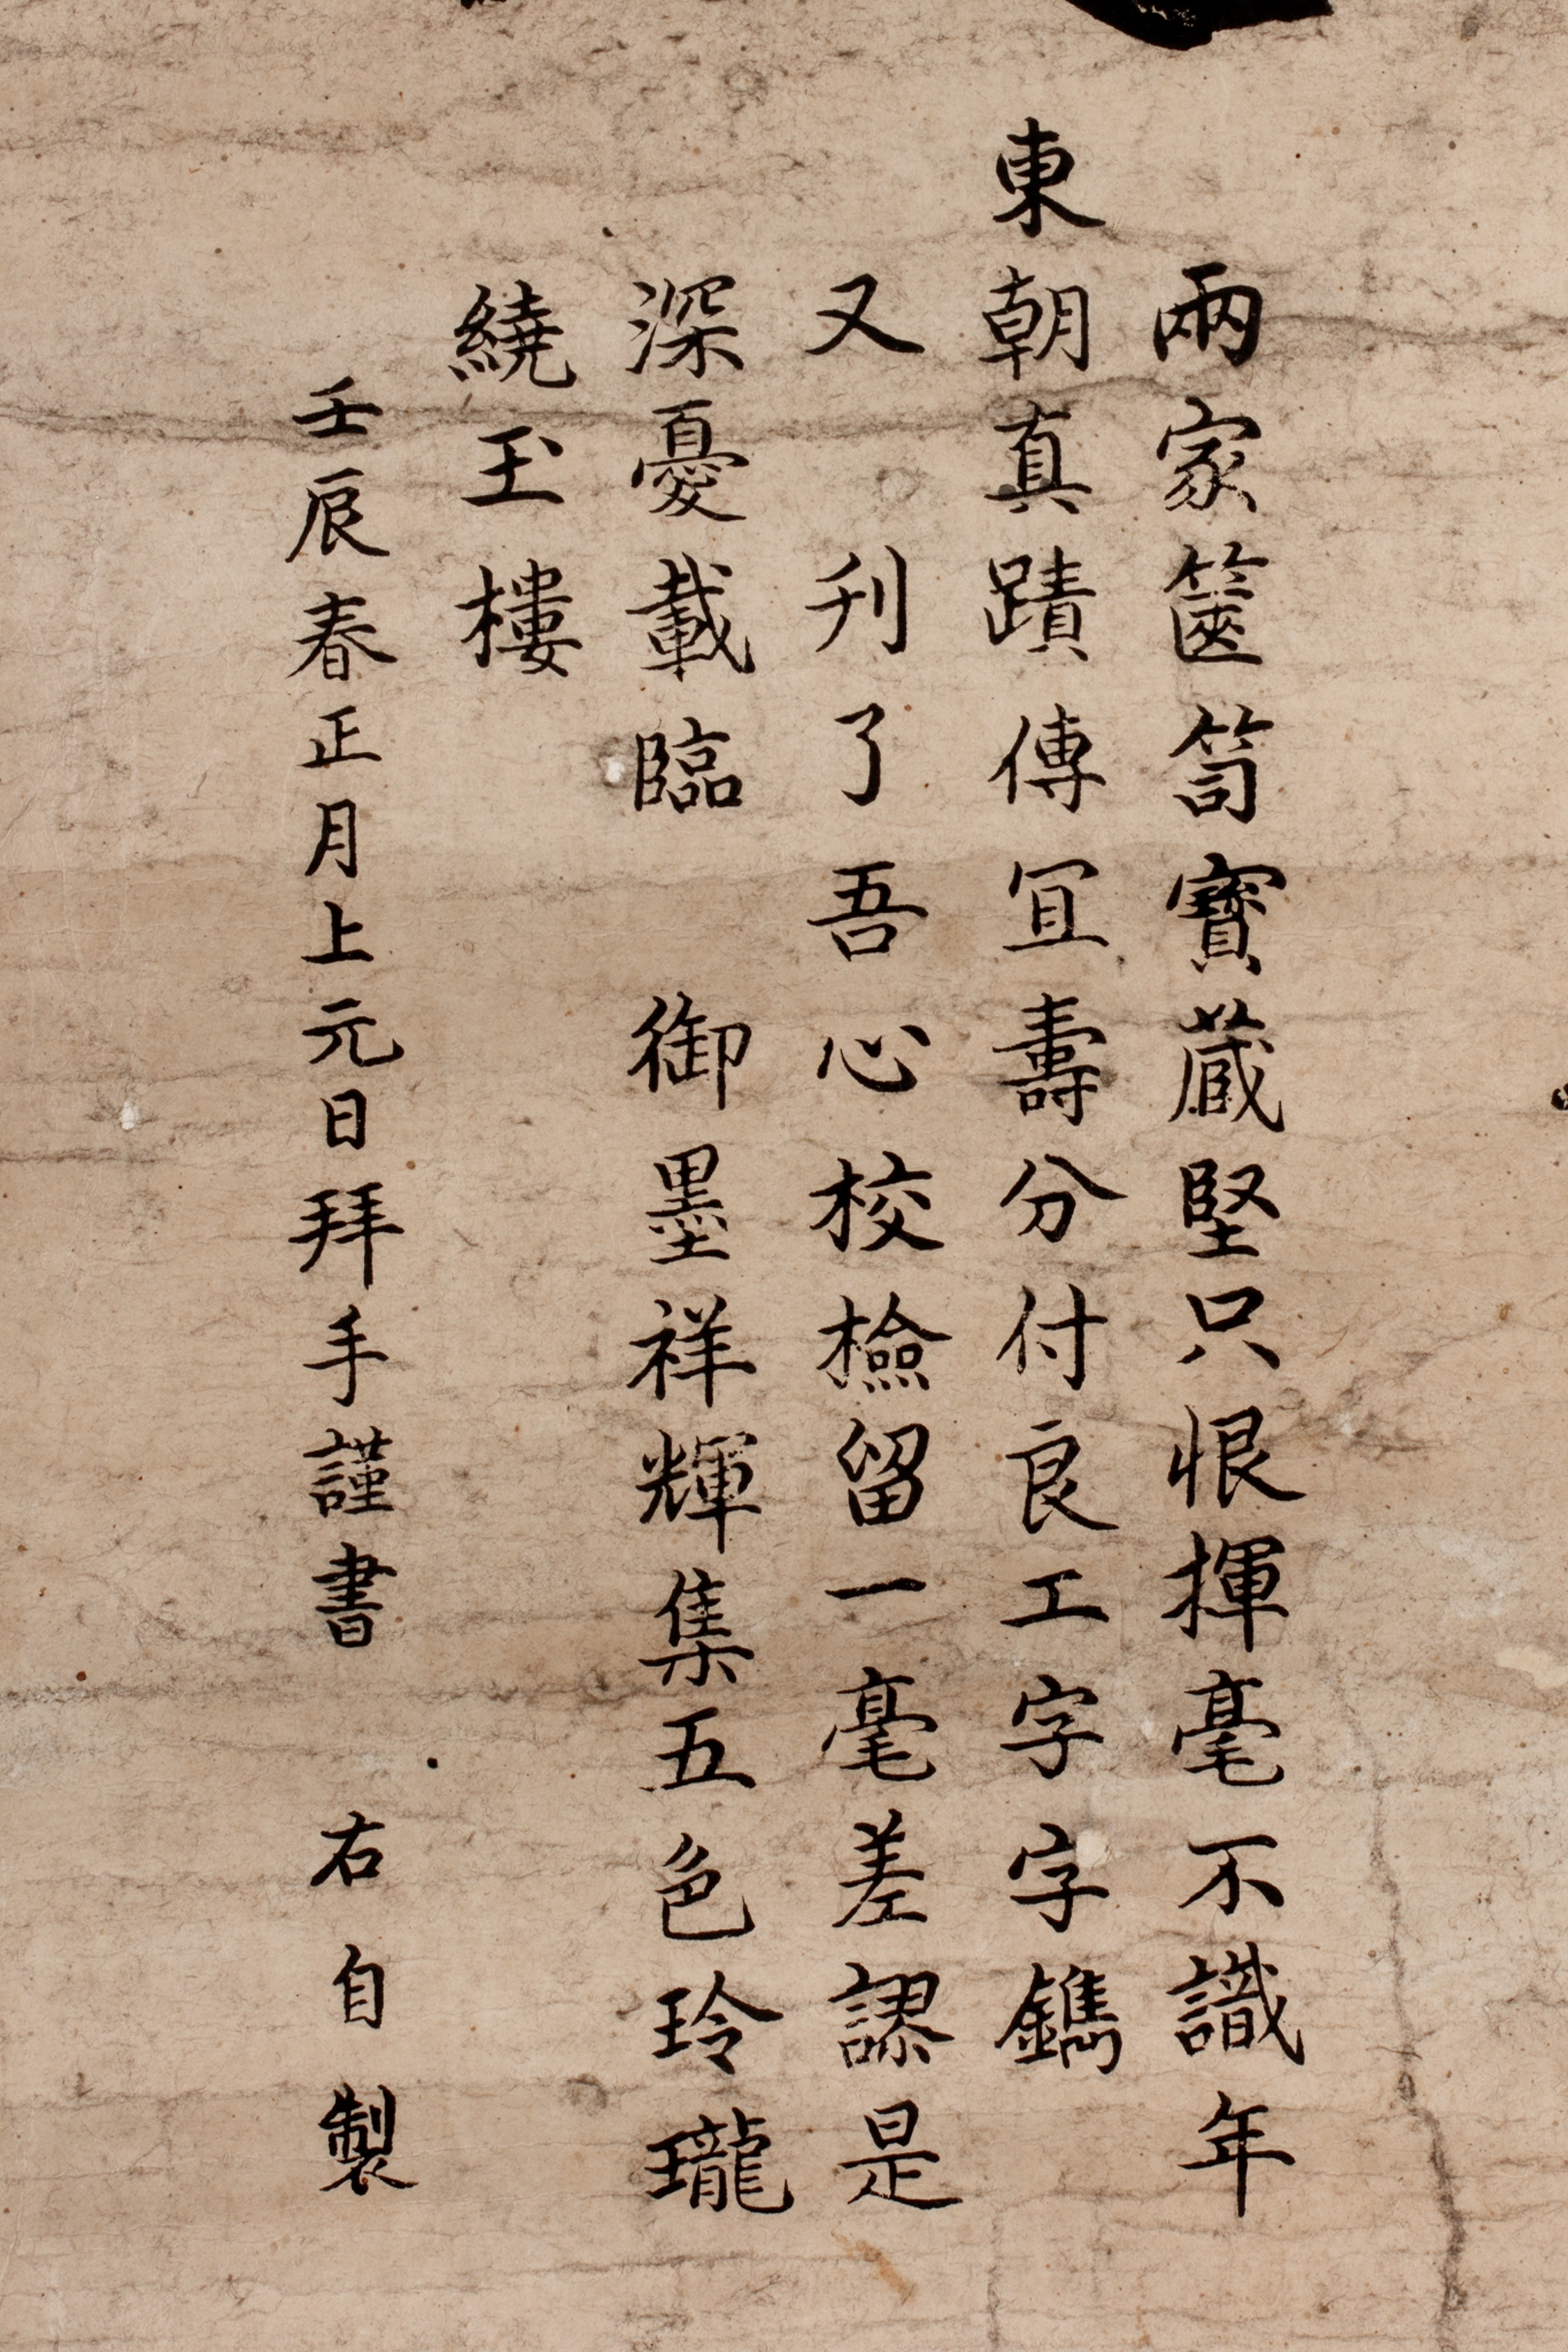 兩家篋笥寶藏堅只恨揮毫不識年
東朝真蹟傳宜壽分付良工字字鐫
又刋了吾心校檢留一毫差謬是
深憂載臨 御墨祥輝集五色玲瓏
繞玉樓
壬辰春正月上元日拜手謹書 右自製